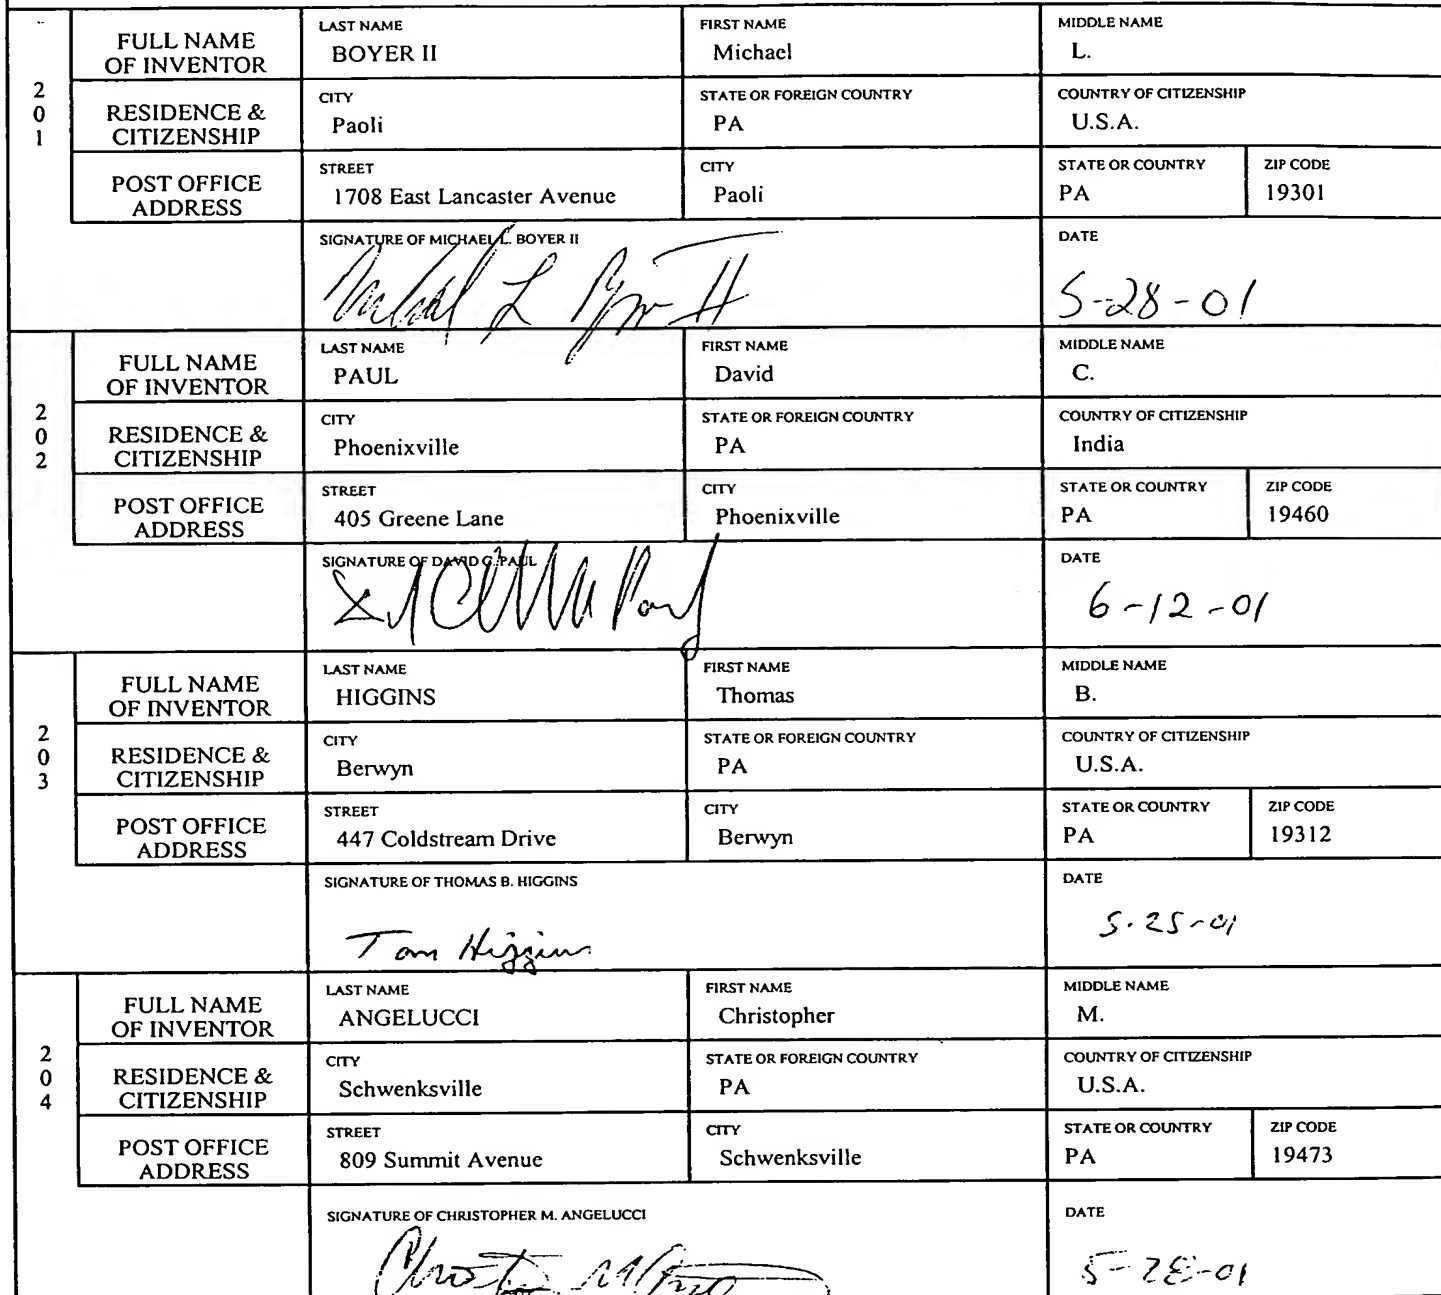 201
FULL NAME OF INVENTOR
LAST NAME
BOYER II
FIRST NAME
Michael
MIDDLE NAME
L.
RESIDENCE & CITIZENSHIP
CITY
Paoli
STATE OR FOREIGN COUNTRY
PA
COUNTRY OF CITIZENSHIP
U.S.A.
POST OFFICE ADDRESS
STREET
1708 East Lancaster Avenue
CITY
Paoli
STATE OR COUNTRY
PA
ZIP CODE
19301
SIGNATURE OF MICHAEL L. BOYER II
Michael L Boyer II
DATE
5-28-01
202
FULL NAME OF INVENTOR
LAST NAME
PAUL
FIRST NAME
David
MIDDLE NAME
C.
RESIDENCE & CITIZENSHIP
CITY
Phoenixville
STATE OR FOREIGN COUNTRY
PA
COUNTRY OF CITIZENSHIP
India
POST OFFICE ADDRESS
STREET
405 Greene Lane
CITY
Phoenixville
STATE OR COUNTRY
PA
ZIP CODE
19460
SIGNATURE OF DAVID C. PAUL
DATE
6-12-01
203
FULL NAME OF INVENTOR
LAST NAME
HIGGINS
FIRST NAME
Thomas
MIDDLE NAME
B.
RESIDENCE & CITIZENSHIP
CITY
Berwyn
STATE OR FOREIGN COUNTRY
PA
COUNTRY OF CITIZENSHIP
U.S.A.
POST OFFICE ADDRESS
STREET
447 Coldstream Drive
CITY
Berwyn
STATE OR COUNTRY
PA
ZIP CODE
19312
SIGNATURE OF THOMAS B. HIGGINS
Tom Higgins
DATE
5-25-01
204
FULL NAME OF INVENTOR
LAST NAME
ANGELUCCI
FIRST NAME
Christopher
MIDDLE NAME
M.
RESIDENCE & CITIZENSHIP
CITY
Schwenksville
STATE OR FOREIGN COUNTRY
PA
COUNTRY OF CITIZENSHIP
U.S.A.
POST OFFICE ADDRESS
STREET
809 Summit Avenue
CITY
Schwenksville
STATE OR COUNTRY
PA
ZIP CODE
19473
SIGNATURE OF CHRISTOPHER M. ANGELUCCI
DATE
5-28-01